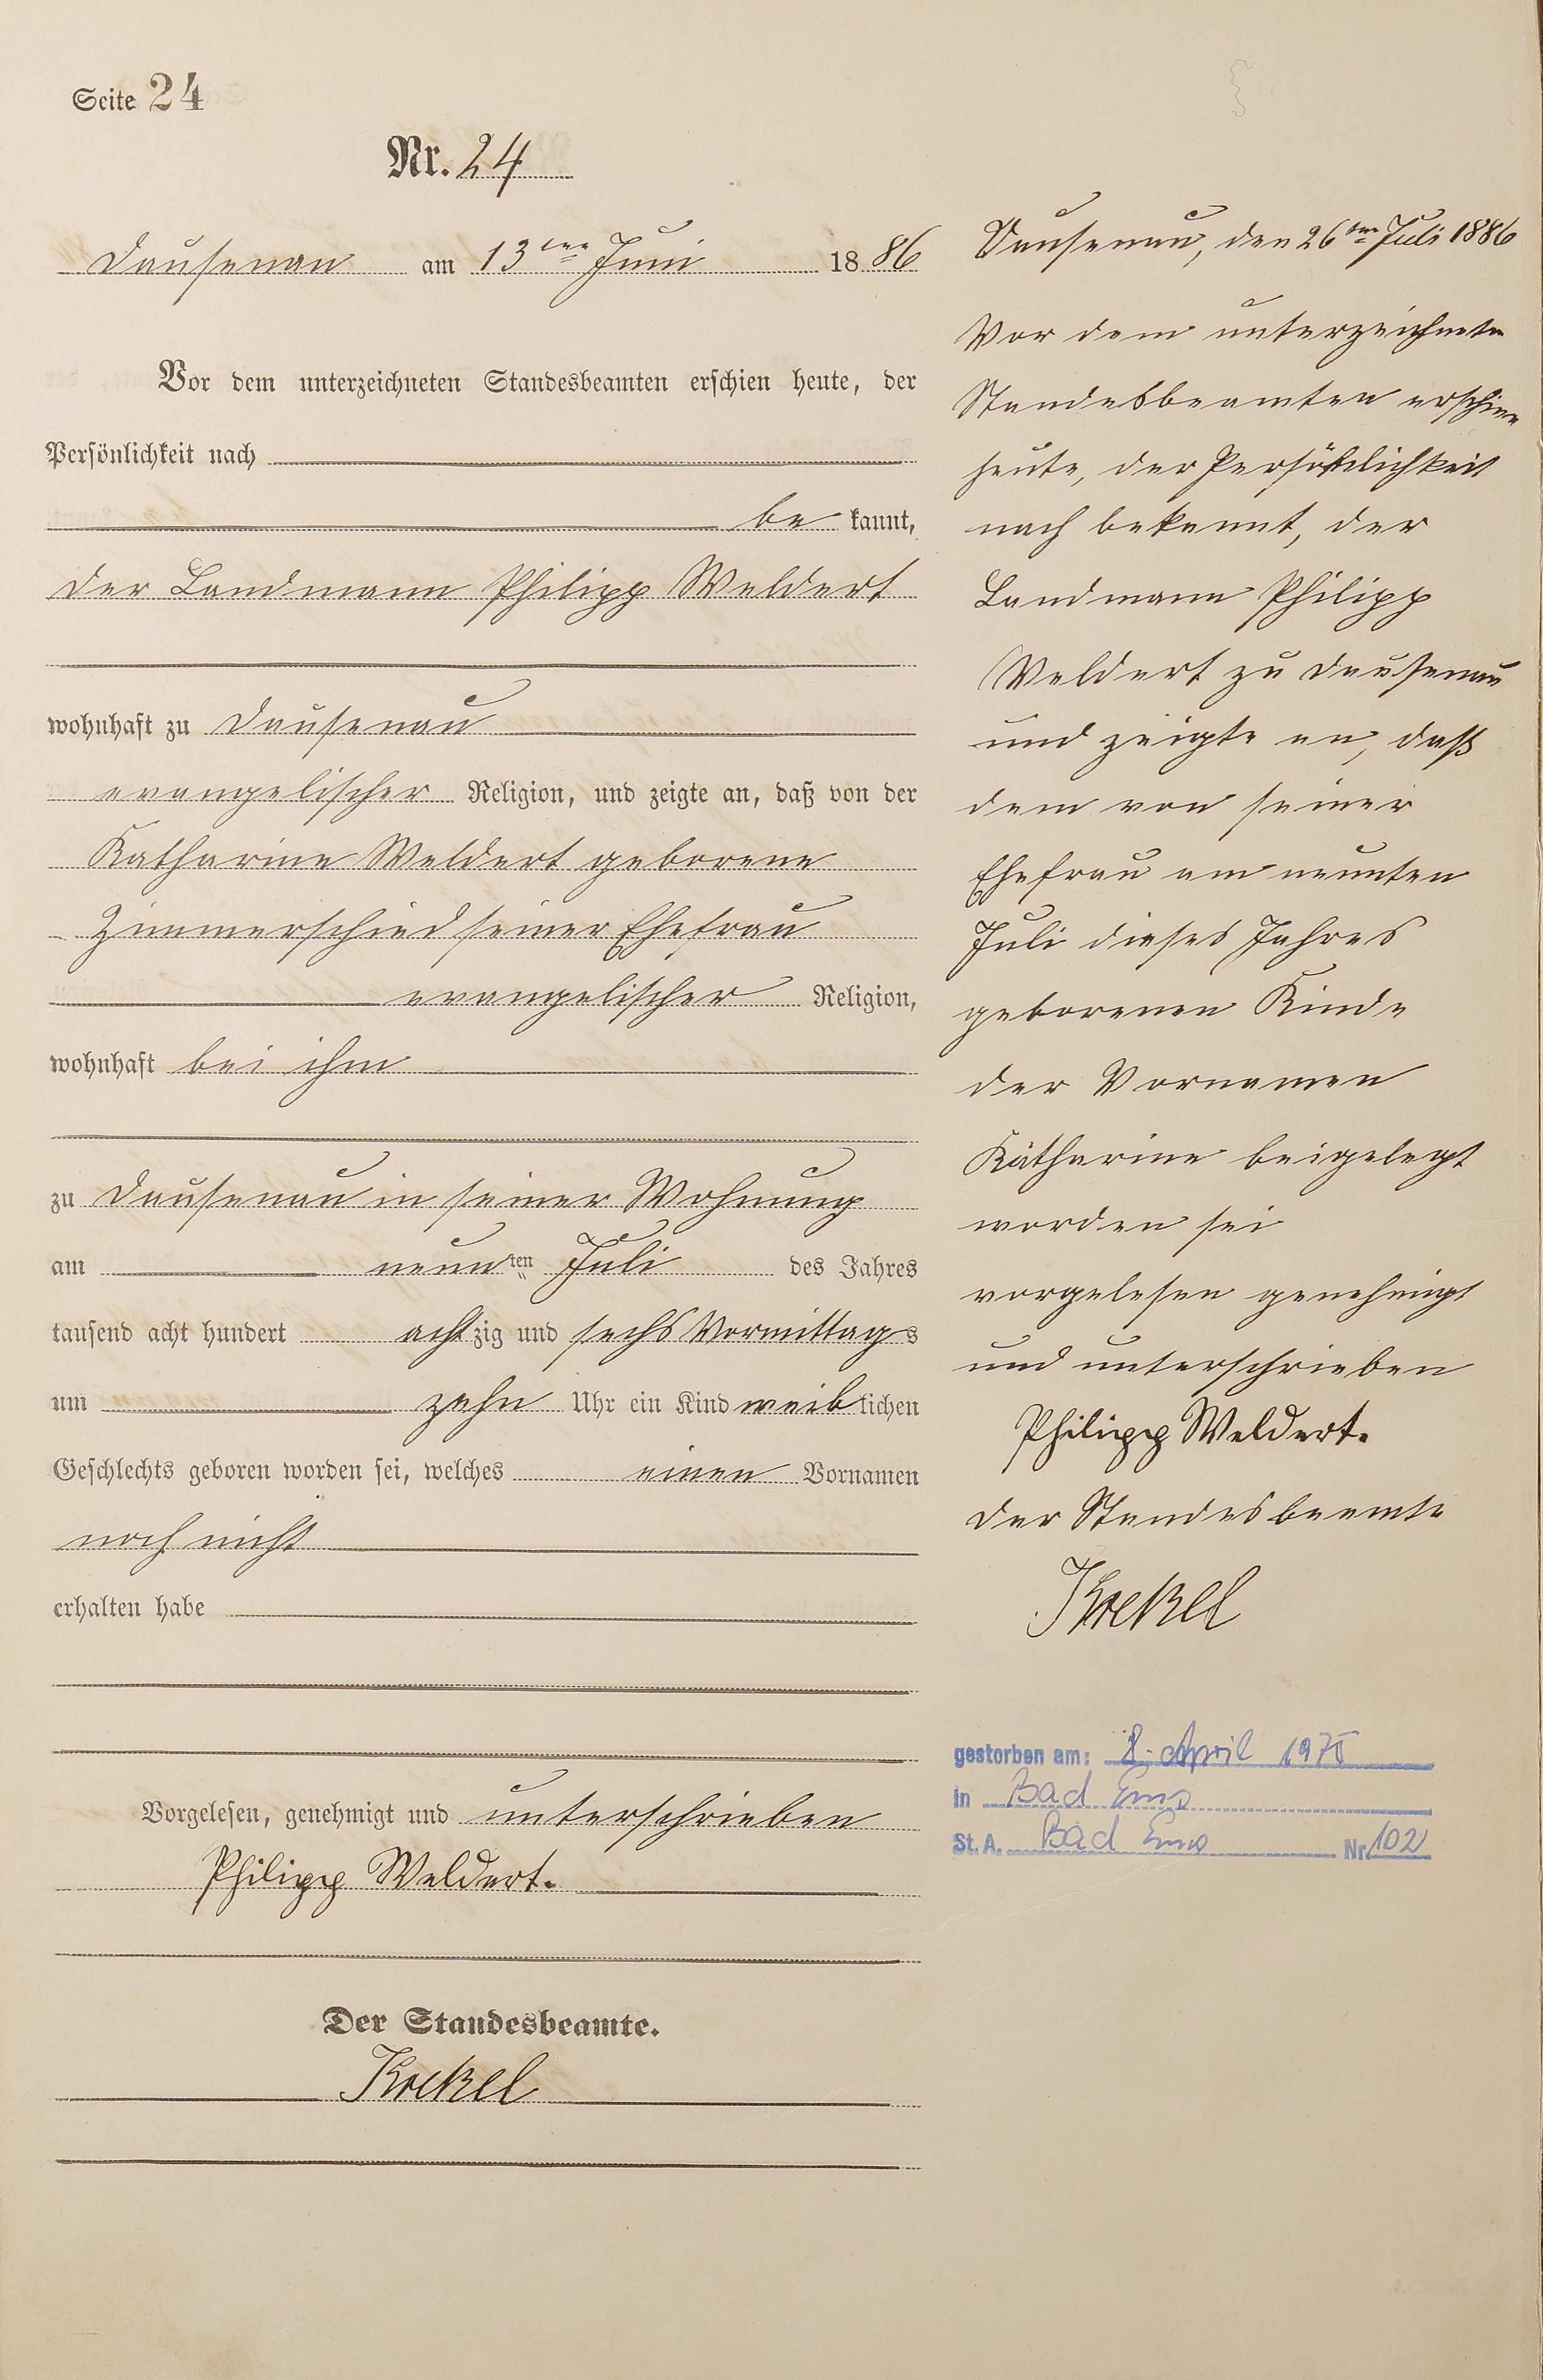 Seite 24
Nr. 24
Dausenau am 13ten Juni 1886
Vor dem unterzeichneten Standesbeamten erschien heute, der
Persönlichkeit nach
bekannt,
der Landmann Philipp Weldert
wohnhaft zu Dausenau
evangelischer Religion, und zeigte an, daß von der
Katharine Weldert geborene
Zimmerschied seiner Ehefrau
evangelischer Religion,
wohnhaft bei ihm
zu Dausenau in seiner Wohnung
am neunten Juli des Jahres
tausend acht hundert achtzig und sechs Vormittags
um zehn Uhr ein Kind weiblichen
Geschlechts geboren worden sei, welches einen Vornamen
noch nicht
erhalten habe
Vorgelesen, genehmigt und unterschrieben
Philipp Weldert.
Der Standesbeamte.
Dausenau, den 26ten Juli 1886
Vor dem unterzeichneten
Standesbeamten erschien
heute, der Persönlichkeit
nach bekannt, der
Landmann Philipp
Weldert zu Dausenau
und zeigte an, daß
dem von seiner
Ehefrau am neunten
Juli dieses Jahres
geborenen Kinde
der Vornamen
Katharine beigelegt
worden sei
vorgelesen genehmigt
und unterschrieben
Philipp Weldert.
der Standesbeamte
gestorben am: 8. April 197
in Bad Ems
St. A. Bad Ems Nr. 102